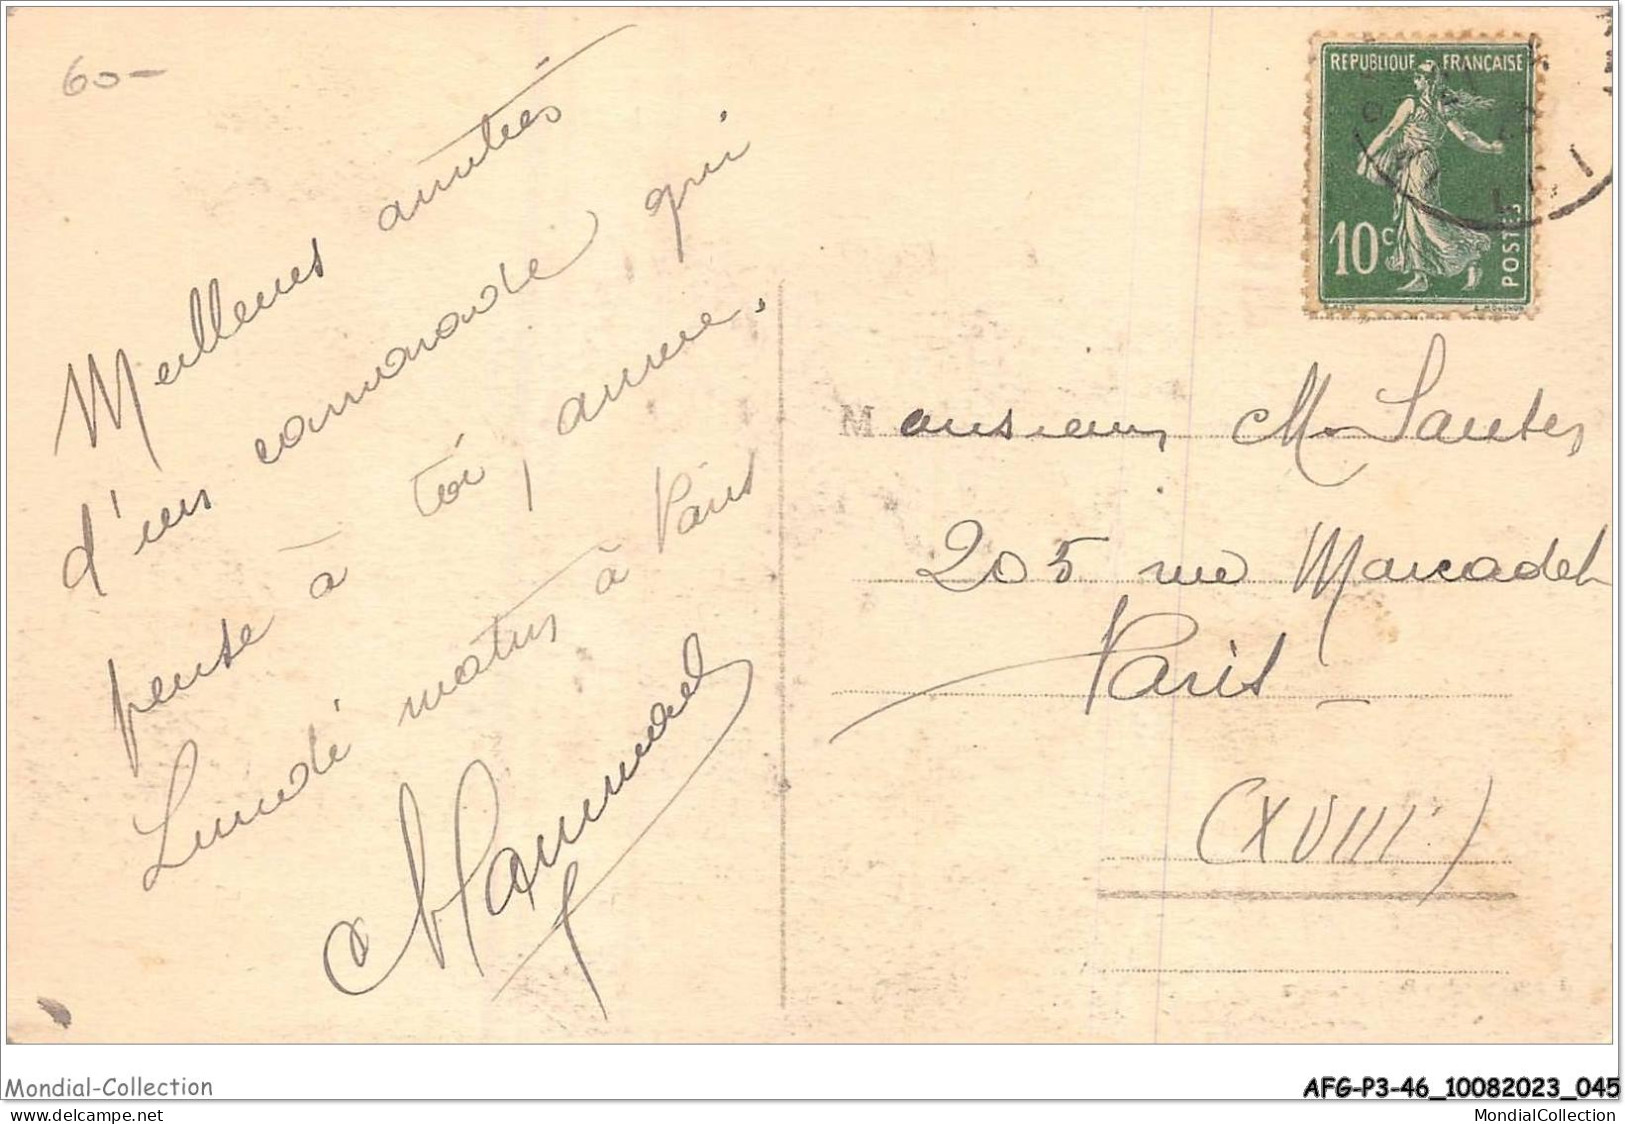 60-
Meilleures amitiés
d'un camarade qui
pense à toi, anme.
Lundi matin à Paris
REPUBLIQUE FRANÇAISE
10c
POSTES
Monsieur M Sautes
205 rue Marcadet
Paris
(XVIII)
Mondial-Collection
AFG-P3-46_10082023_045
www.delcampe.net
MondialCollection